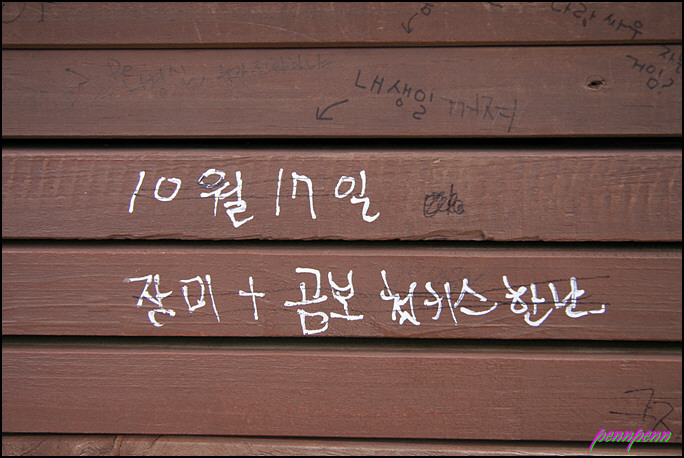 나랑 싸우
게임?
내생일 꺼져
10월 17일
장미 + 곰보 첩키스 한날.
pennpenn